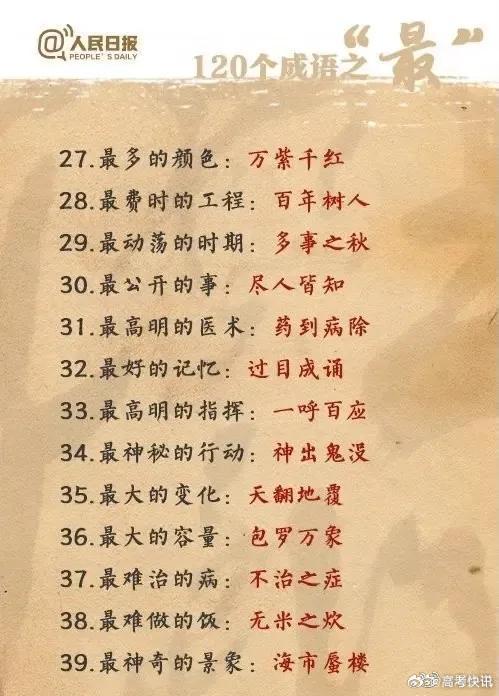 人民日报
PEOPLE'S DAILY
120个成语之“最”
27.最多的颜色：万紫千红
28.最费时的工程：百年树人
29.最动荡的时期：多事之秋
30.最公开的事：尽人皆知
31.最高明的医术：药到病除
32.最好的记忆：过目成诵
33.最高明的指挥：一呼百应
34.最神秘的行动：神出鬼没
35.最大的变化：天翻地覆
36.最大的容量：包罗万象
37.最难治的病：不治之症
38.最难做的饭：无米之炊
39.最神奇的景象：海市蜃楼
@高考快讯